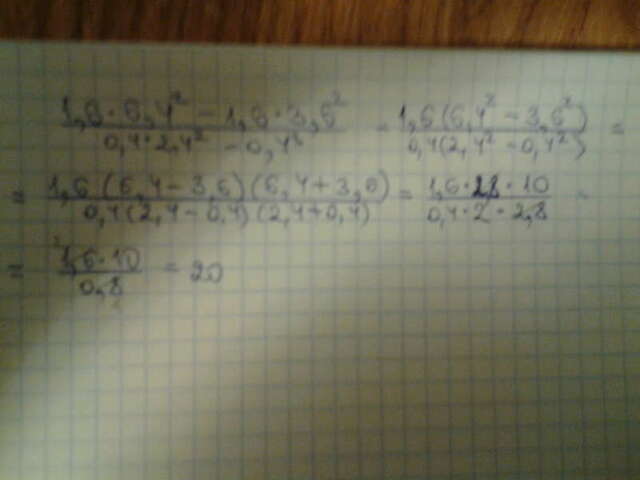 1,6·6,4² − 1,6·3,6² / 0,4·2,4² − 0,4³ = 1,6(6,4² − 3,6²) / 0,4(2,4² − 0,4²) =
= 1,6(6,4−3,6)(6,4+3,6) / 0,4(2,4−0,4)(2,4+0,4) = 1,6·2,8·10 / 0,4·2·2,8 =
= 1,6·10 / 0,8 = 20